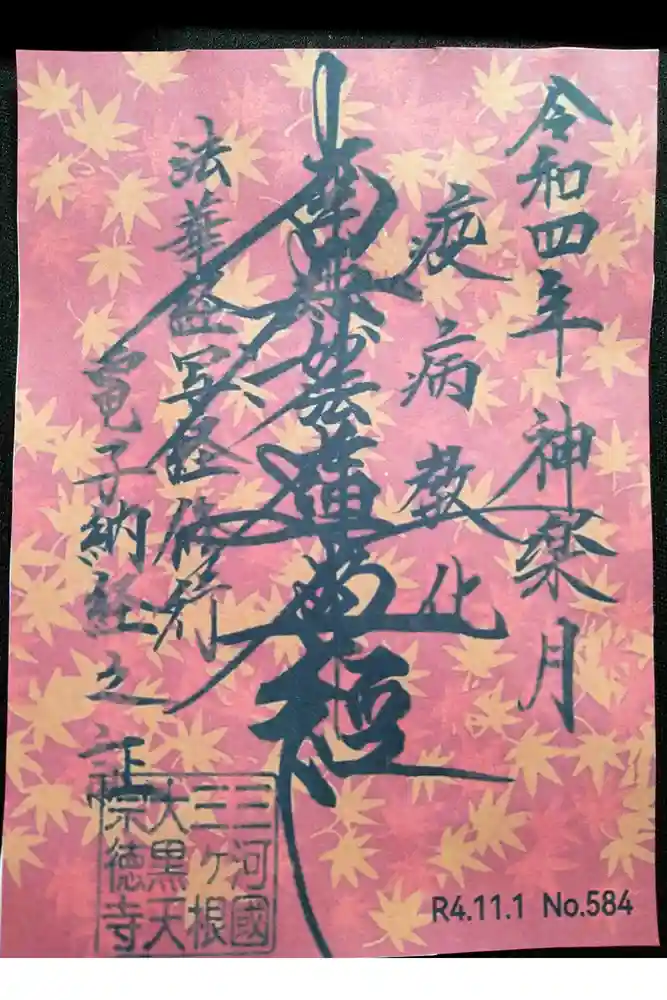 令和四年 神楽月
疫病教化
南無妙法蓮華経
法華経写経修行
電子納経之証
三河國
三ヶ根
大黒天
宗徳寺
R4.11.1 No.584